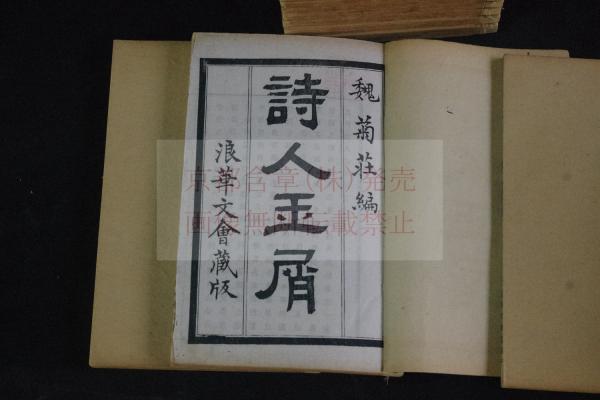 魏菊莊編
詩人玉屑
浪華文會藏版
京都含章(株)発売
画像無断転載禁止